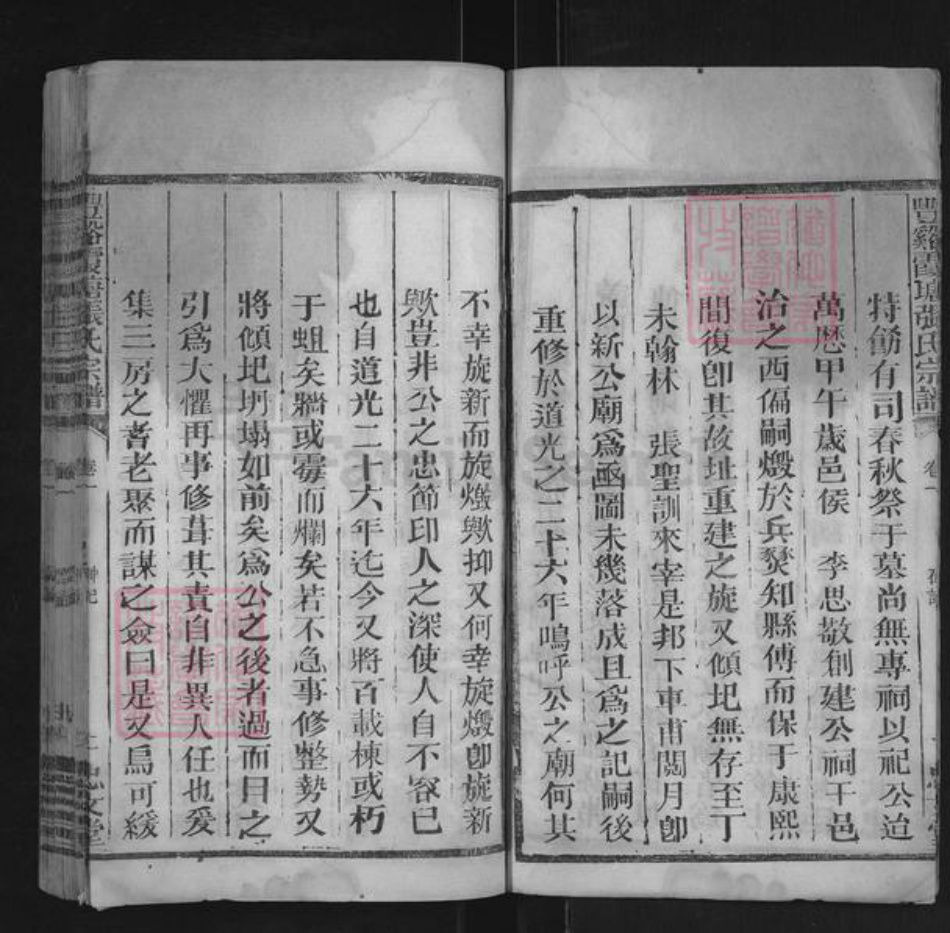 豐谿霞塘張氏宗譜
卷一
特勅有司春秋祭于墓尚無專祠以祀公迨
萬厯甲午歲邑侯　李思敬創建公祠于邑
治之西偏嗣燬於兵燹知縣傅而保于康熙
間復卽其故址重建之旋又傾圮無存至丁
未翰林　張聖訓來宰是邦下車甫閱月卽
以新公廟爲亟圖未幾落成且爲之記嗣後
重修於道光之二十六年嗚呼公之廟何其
不幸旋新而旋燬歟抑又何幸旋燬卽旋新
歟豈非公之忠節印人之深使人自不容已
也自道光二十六年迄今又將百載棟或朽
于蛆矣牆或霉而爛矣若不急事修整勢又
將傾圮坍塌如前矣爲公之後者過而目之
引爲大懼再事修葺其責自非異人任也爰
集三房之耆老聚而謀之僉曰是又烏可緩
豐谿霞塘張氏宗譜
卷一